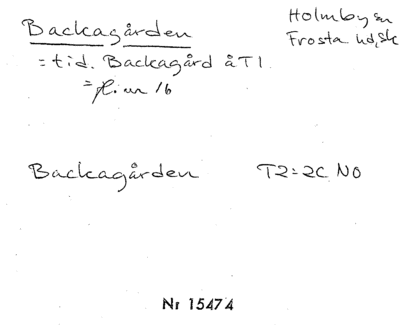 Backagården
Holmby sn
Frosta hd, Sk
= tid. Backagård å T1
= fl. nr 16
Backagården T2 = 2C NO
Nr 15474